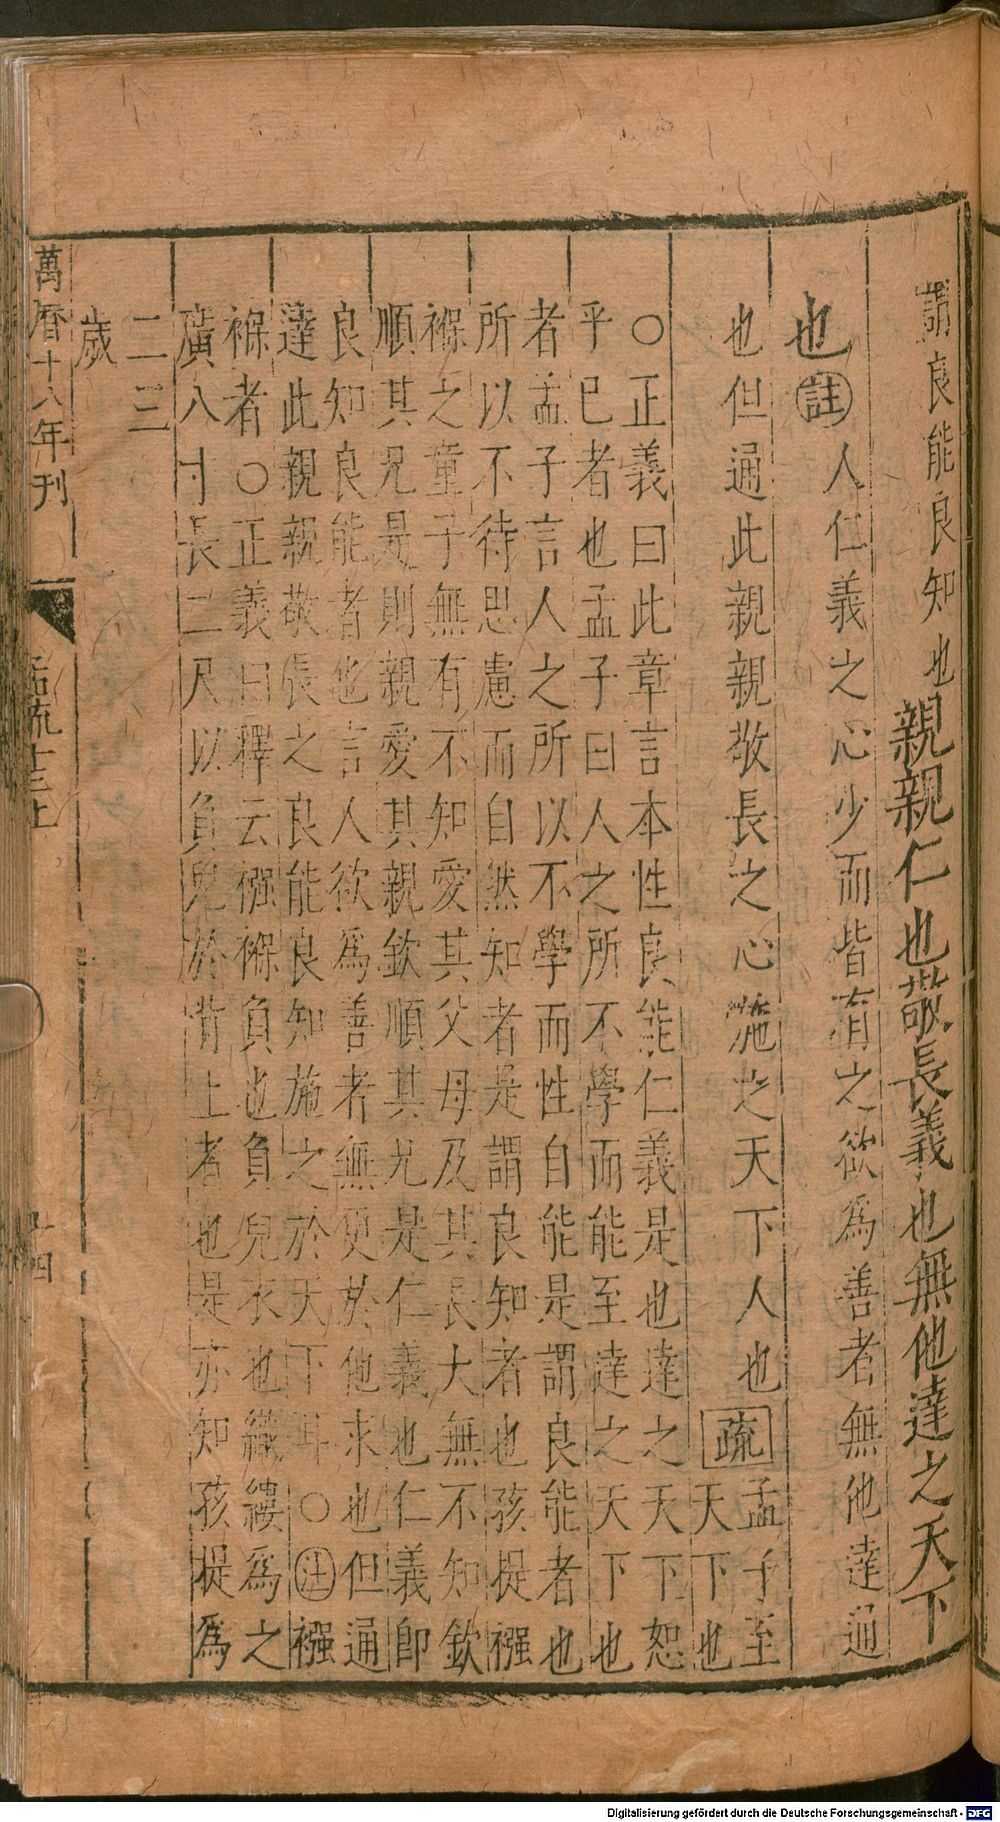 謂良能良知也親親仁也敬長義也無他達之天下
也註人仁義之心少而皆有之欲爲善者無他達通
也但通此親親敬長之心施之天下人也疏孟子至
天下也
○正義曰此章言本性良能仁義是也達之天下恕
乎已者也孟子曰人之所不學而能至達之天下也
者孟子言人之所以不學而性自能是謂良能者也
所以不待思慮而自然知者是謂良知者也孩提襁
褓之童子無有不知愛其父母及其長大無不知欽
順其兄是則親愛其親欽順其兄是仁義也仁義即
良知良能者也言人欲爲善者無更於他求也但通
達此親親敬長之良能良知施之於天下耳○注襁
褓者○正義曰釋云襁褓負也負兒衣也織縷爲之
廣八寸長二尺以負兒於背上者也是亦知孩提爲
二三
歲
萬曆十八年刊
孟疏十三上
十四
Digitalisierung gefördert durch die Deutsche Forschungsgemeinschaft - DFG